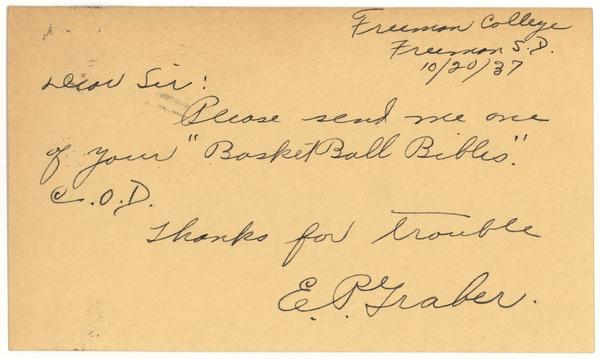 Freeman College
Freeman S.D.
10/20/37
Dear Sir:
Please send me one
of your "BasketBall Bibles".
C.O.D.
Thanks for trouble
E.P. Graber.